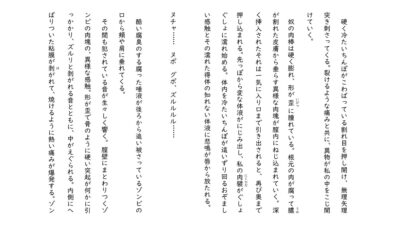 硬く冷たいちんぽがこわばっている割れ目を押し開け、無理矢理
突き刺さってくる。裂けるような痛みと共に、異物が私の中をこじ開
けていく。
奴の肉棒は硬く膨れ、形が歪に腫れている。根元の肉が腐って膿
が割れた皮膚から垂らす異様な肉塊が膣内にねじ込まれていく。深
く挿入されたそれは一気に入り口まで引き出されると、再び奥まで
押し込まれる。先っぽから変な体液がにじみ出し、私の肉襞がぐしょ
ぐしょに濡れ始める。体内を冷たいちんぽが這いずり回るおぞまし
い感触とその濡れた得体の知れない体液に悲鳴が唇から放たれる。
ヌチャ……　ヌポ　グポ、ズルルルル……
酷い腐臭のする腐った唾液が後ろから追い被さっているゾンビの
口から頬や肩に垂れてくる。
その間も犯されている音が生々しく響く。膣壁にまとわりつくゾ
ンビの肉塊の、異様な感触。形が歪で骨のように硬い突起が何かに引
っかかり、ズルリと剥がれる音とともに、中がえぐられる。内側にへ
ばりついた粘膜が剥がれて、焼けるように熱い痛みが爆発する。ゾン